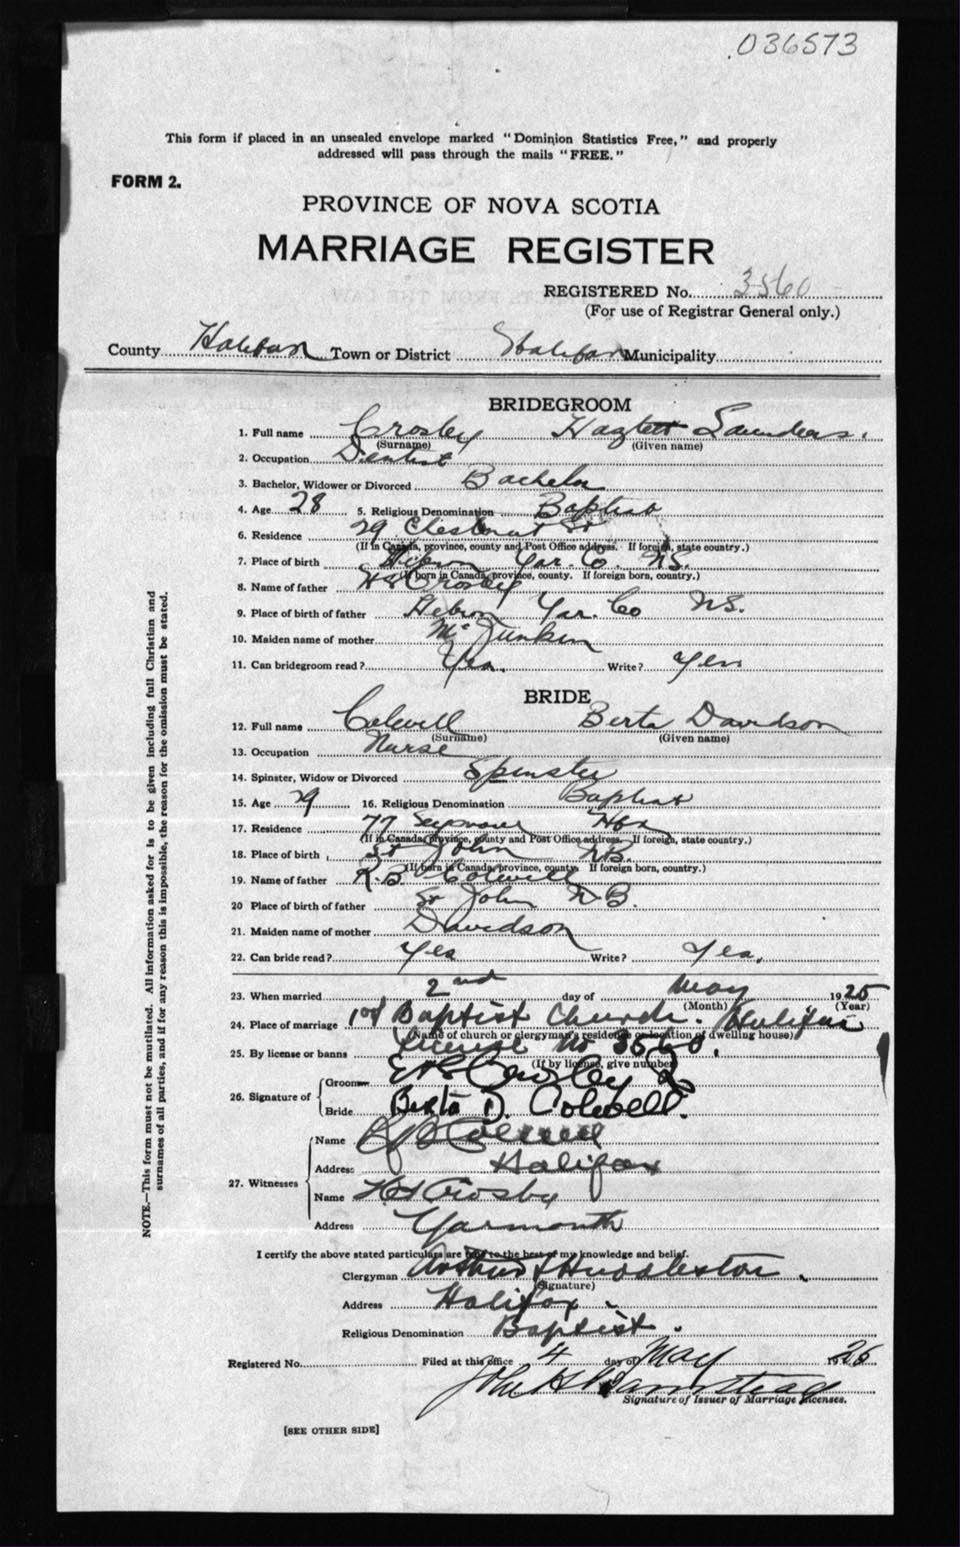 036573
This form if placed in an unsealed envelope marked "Dominion Statistics Free," and properly
addressed will pass through the mails "FREE."
FORM 2.
PROVINCE OF NOVA SCOTIA
MARRIAGE REGISTER
REGISTERED No. 3560
(For use of Registrar General only.)
County Halifax Town or District Halifax Municipality
BRIDEGROOM
1. Full name Crosby Saunders.
(Surname) (Given name)
2. Occupation Dentist
3. Bachelor, Widower or Divorced Bachelor
4. Age 28 5. Religious Denomination Baptist
6. Residence 29 Chestnut St
(If in Canada, province, county and Post Office address. If foreign, state country.)
7. Place of birth Hebron Yar. Co. N.S.
(If born in Canada, province, county. If foreign born, country.)
8. Name of father Crosby
9. Place of birth of father Hebron Yar. Co N.S.
10. Maiden name of mother McJunkin
11. Can bridegroom read? Yes. Write? Yes
BRIDE
12. Full name Colwell Berta Davidson
(Surname) (Given name)
13. Occupation Nurse
14. Spinster, Widow or Divorced Spinster
15. Age 29 16. Religious Denomination Baptist
17. Residence 77 Seymour Hfx
(If in Canada, province, county and Post Office address. If foreign, state country.)
18. Place of birth St John N.B.
(If born in Canada, province, county. If foreign born, country.)
19. Name of father R.B. Colwell
20 Place of birth of father St John N.B.
21. Maiden name of mother Davidson
22. Can bride read? Yes Write? Yes.
23. When married 2nd day of May 1925
(Month) (Year)
24. Place of marriage 1st Baptist Church. Halifax
(Name of church or clergyman's residence or location of dwelling house)
25. By license or banns License No 3560.
(If by license, give number)
26. Signature of Groom Crosby
Bride Berta D. Colwell.
27. Witnesses Name Colwell
Address Halifax
Name Crosby
Address Yarmouth
I certify the above stated particulars are true to the best of my knowledge and belief.
Clergyman Arthur Huddleston
(Signature)
Address Halifax
Religious Denomination Baptist.
Registered No. Filed at this office 4 day of May 1925
John H Barnstead
Signature of Issuer of Marriage Licenses.
[SEE OTHER SIDE]
NOTE.—This form must not be mutilated. All information asked for is to be given including full Christian and
surnames of all parties, and if for any reason this is impossible, the reason for the omission must be stated.